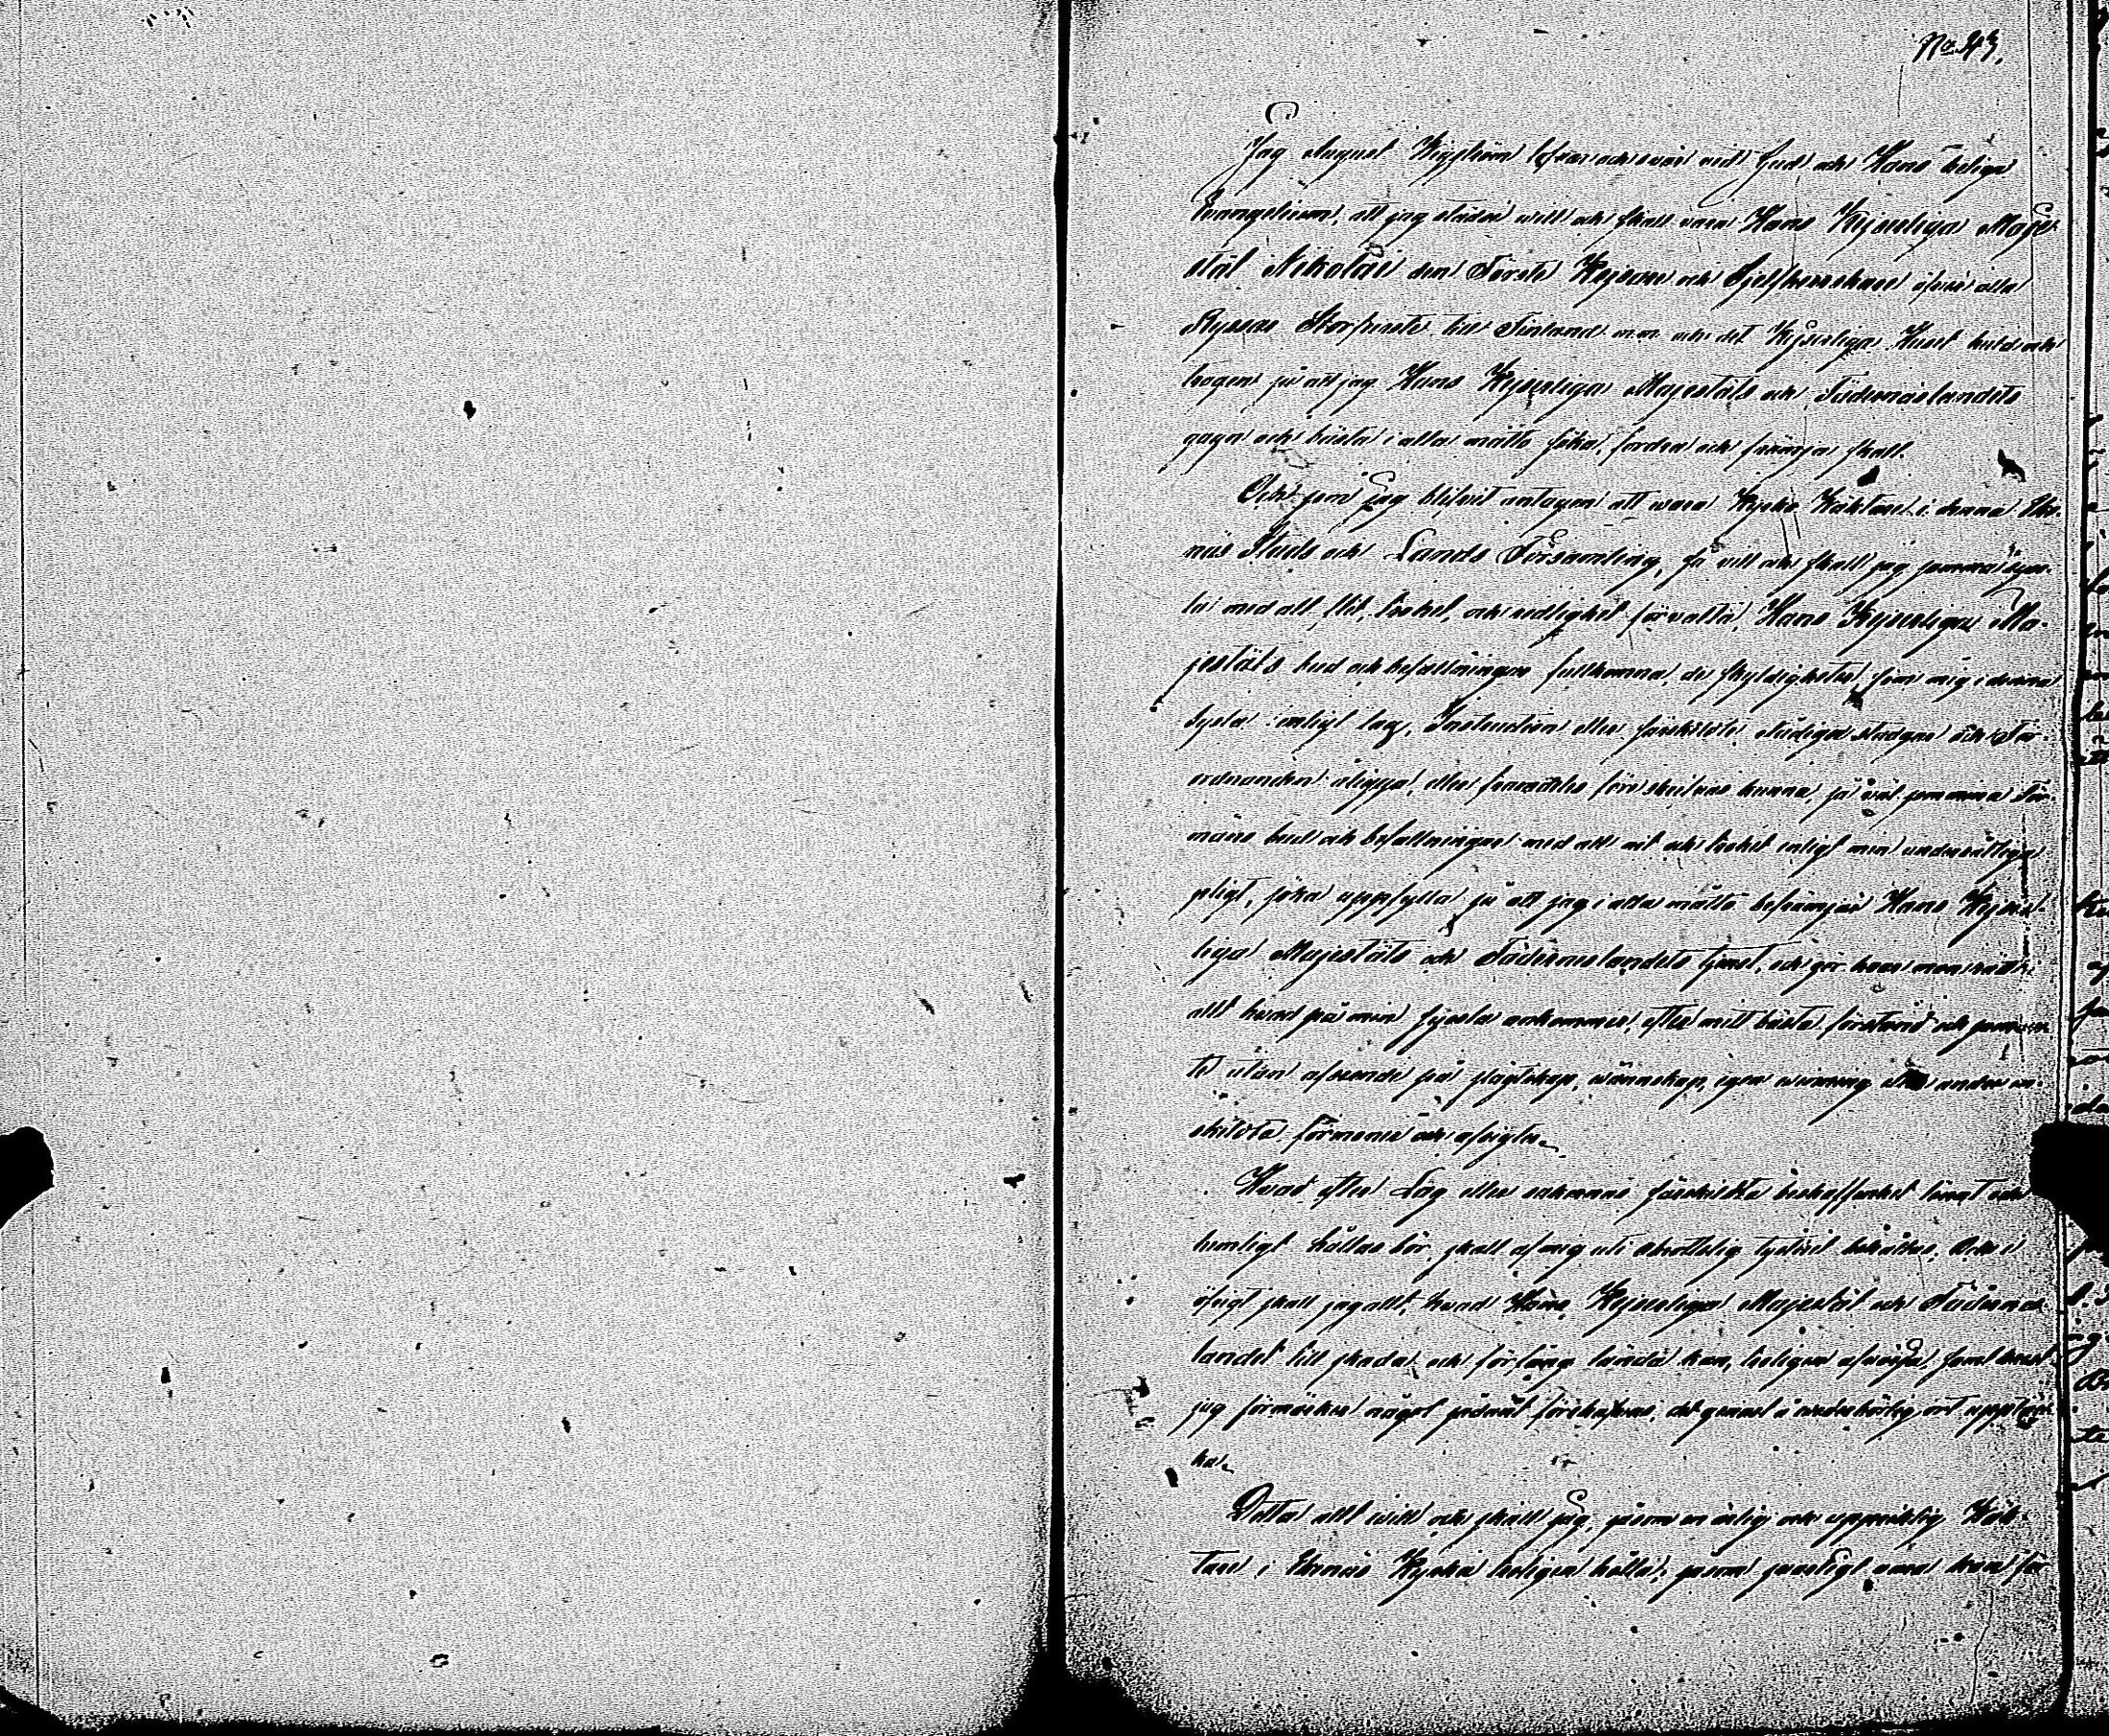 No 43.
Jag August Wigström lofvar och svär vid Gud och Hans heliga
Evangelium, att jag städse will och skall vara Hans Kejserliga Maje-
stät Nikolai den Förste Kejsare och Sjelfherrskare öfver alla
Ryssar Storfurste till Finland m.m. och det Kejserliga Huset huld och
trogen, så att jag Hans Kejserliga Majestäts och Fäderneslandets
gagn och bästa i alla måtto söka, fordra och främja skall.
Och som Jag blifvit antagen att wara Kyrko Wäktare i denna Eke-
näs Stads och Lands Församling, så vill och skall jag samma syss-
la med all flit, trohet, och redlighet förvalta, Hans Kejserliga Ma-
jestäts bud och befallningar fullkomna, de skyldigheter som mig i denna
sysla enligt lag, Instruction eller särskildte städigade stadgar och För-
ordnanden åligga, eller framdeles föreskrifvas kunna, så väl som mina För-
mäns bud och befallningar med all nit och trohet enligt min undersåtliga
pligt, söka uppfylla så att jag i alla måtto befrämjar Hans Kejser-
liga Majestäts och Fäderneslandets tjenst, och gör hvar man rätt i
allt hvad på min syssla ankommer, efter mitt bästa förstånd och samve-
te utan afseende på slägtskap, wänskap, egen winning eller andra en-
skilda förmoner och afsigter.
Hvad efter Lag eller sakernas särskildta beskaffenhet tyst och
hemligt hållas bör skall af mig uti obrottslig tystnad bevaras. Och i
öfrigt skall jag allt, hvad Hans Kejserliga Majestät och Fädernes-
landet till skada och förfång lända kan, troligen afvärja, samt hvar
jag förmärker något sådant förehafvas, det genast å wederbörlig ort upptäc-
ka.
Detta allt will och skall jag, såsom en ärlig och uppriktig Wäk-
tare i Ekenäs Kyrka troligen hålla, såsom jag